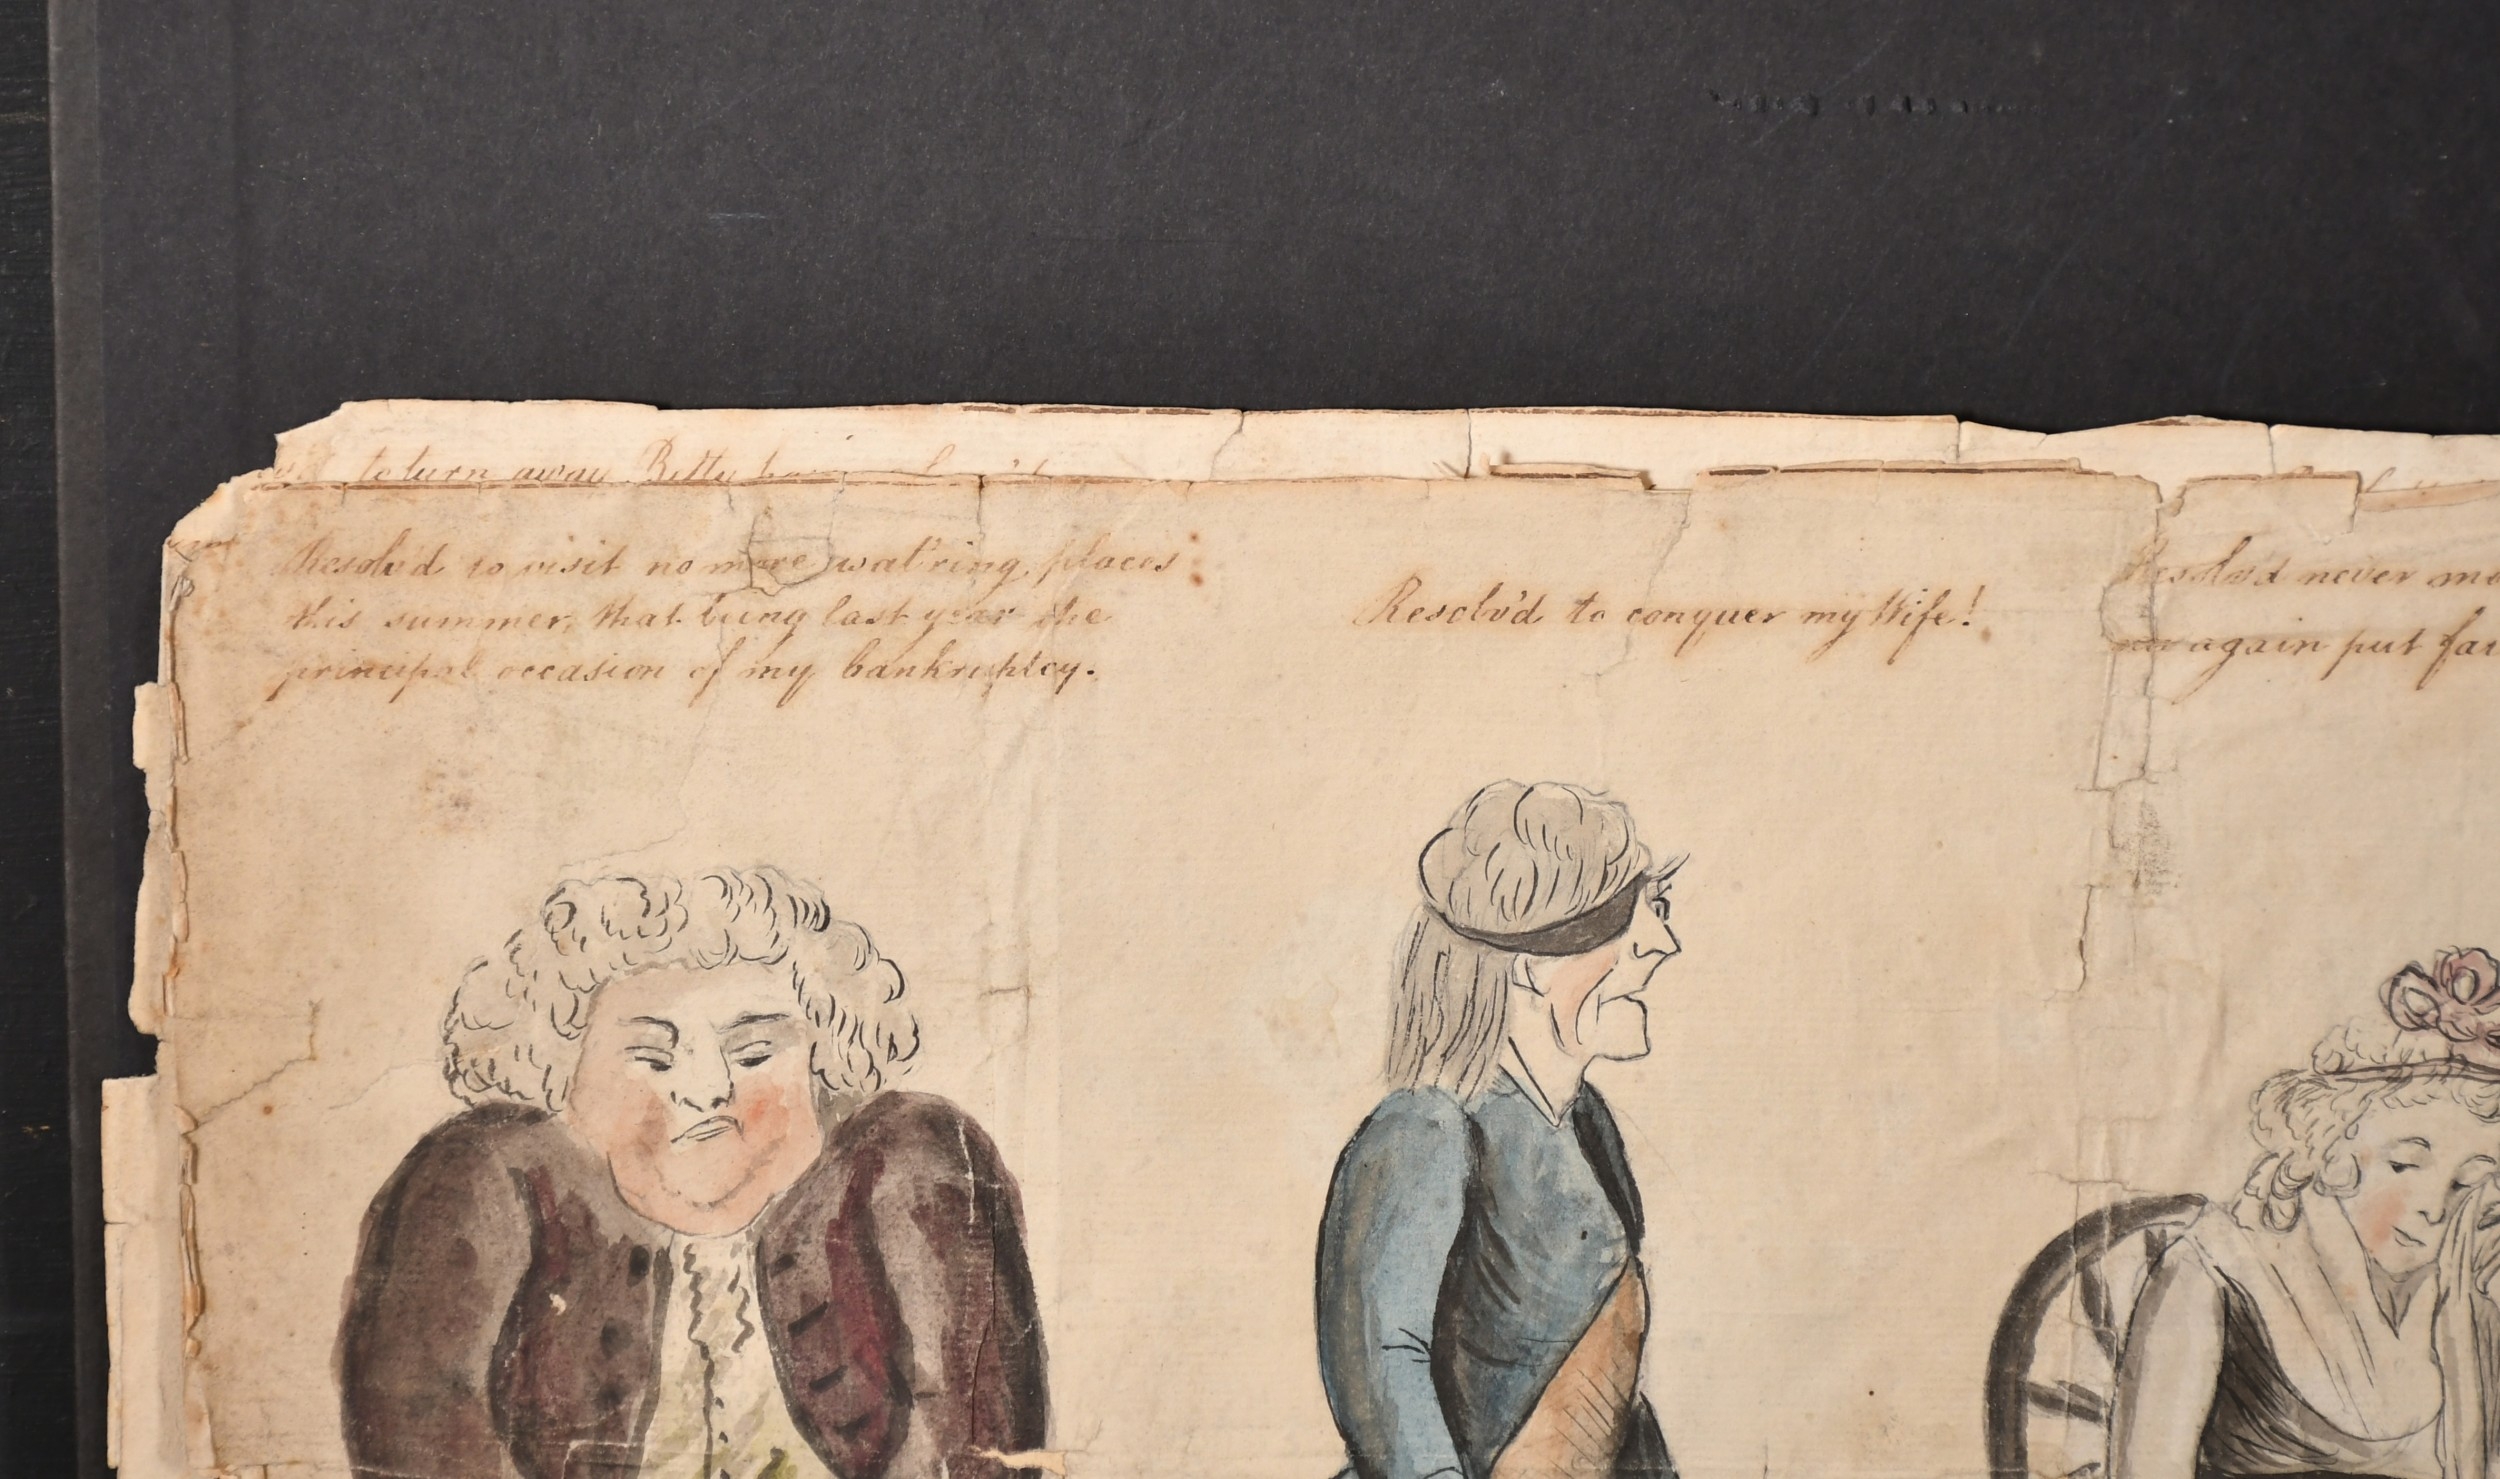 to turn away Betty
Resolv'd to visit no more wat'ring places
this summer, that being last year the
principal occasion of my bankruptcy.
Resolv'd to conquer my Wife!
Resolv'd never mo
again put fai